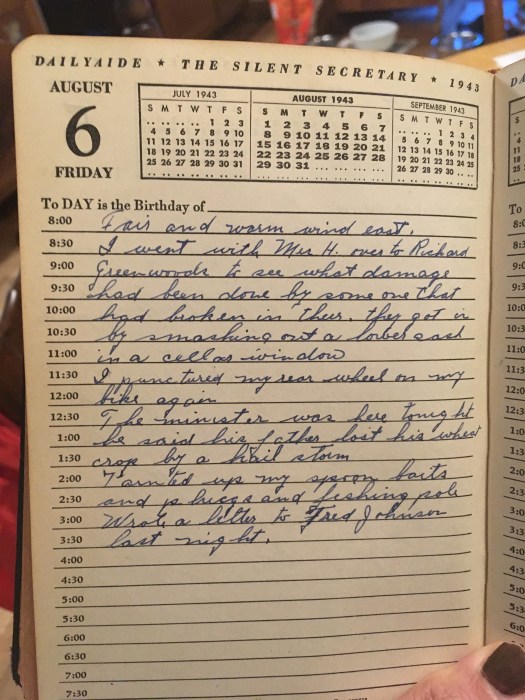 DAILYAIDE ★ THE SILENT SECRETARY ★ 1943
AUGUST
6
FRIDAY
JULY 1943
S M T W T F S
.. .. .. .. 1 2 3
4 5 6 7 8 9 10
11 12 13 14 15 16 17
18 19 20 21 22 23 24
25 26 27 28 29 30 31
AUGUST 1943
S M T W T F S
1 2 3 4 5 6 7
8 9 10 11 12 13 14
15 16 17 18 19 20 21
22 23 24 25 26 27 28
29 30 31 .. .. .. ..
SEPTEMBER 1943
S M T W T F S
.. .. .. 1 2 3 4
5 6 7 8 9 10 11
12 13 14 15 16 17 18
19 20 21 22 23 24 25
26 27 28 29 30 .. ..
To DAY is the Birthday of
8:00 Fair and warm wind east.
8:30 I went with Mrs H. over to Richard
9:00 Greenwoods to see what damage
9:30 had been done by some one that
10:00 had broken in thers. they got in
10:30 by smashing out a lower sash
11:00 in a cellar window
11:30 I punctured my rear wheel on my
12:00 bike again
12:30 The minister was here tonight
1:00 he said his father lost his wheat
1:30 crop by a hail storm
2:00 up my spoon baits
2:30 and and fishing pole
3:00 Wrote a letter to Fred Johnson
3:30 last night.
4:00
4:30
5:00
5:30
6:00
6:30
7:00
7:30